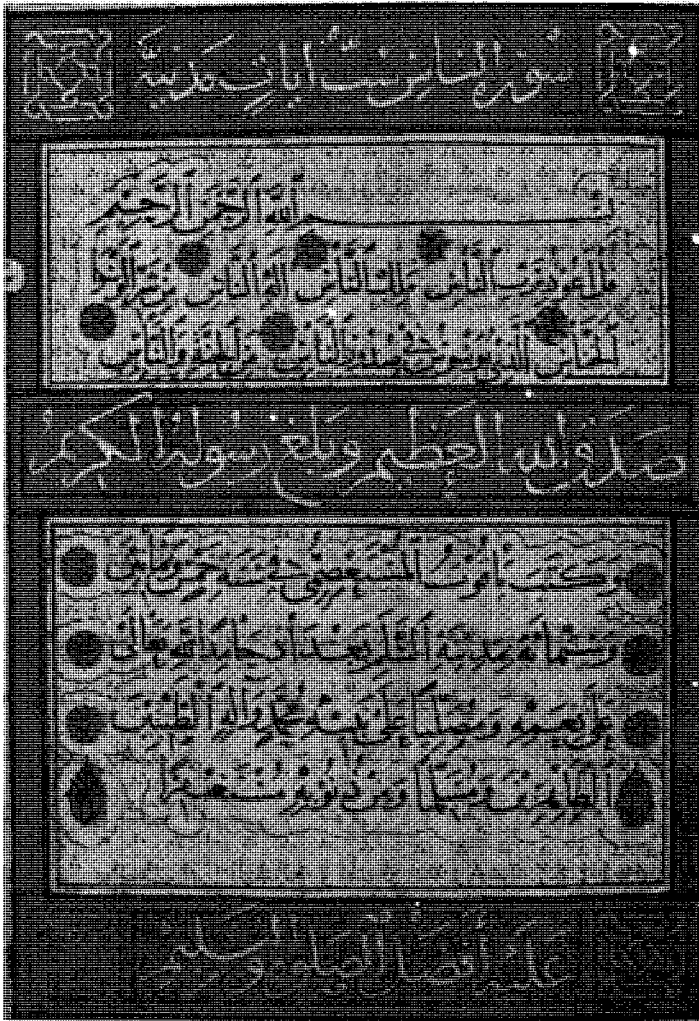 سورة الناس ست آيات مدنية
بسم الله الرحمن الرحيم
قل أعوذ برب الناس ملك الناس إله الناس من شر الوسواس
الخناس الذي يوسوس في صدور الناس من الجنة والناس
صدق الله العظيم وبلغ رسوله الكريم
وكتب ياقوت المستعصمي في سنة خمس وثمانين
وستمائة بمدينة السلام بغداد حامدا لله تعالى
على نعمه ومصليا على نبيه محمد وآله الطيبين
الطاهرين ومسلما ومن ذنوبه مستغفرا
عليه أفضل الصلوة والتسليم